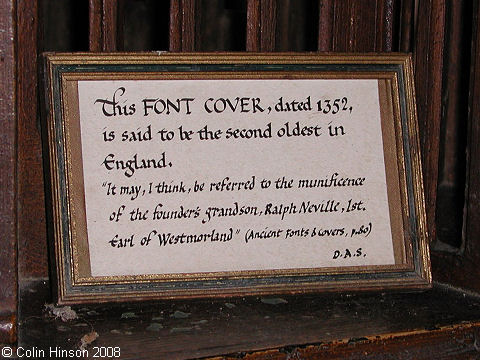 This FONT COVER, dated 1352,
is said to be the second oldest in
England.
"It may, I think, be referred to the munificence
of the founder's grandson, Ralph Neville, 1st.
Earl of Westmorland" (Ancient Fonts & Covers, p.80)
D.A.S.
© Colin Hinson 2008